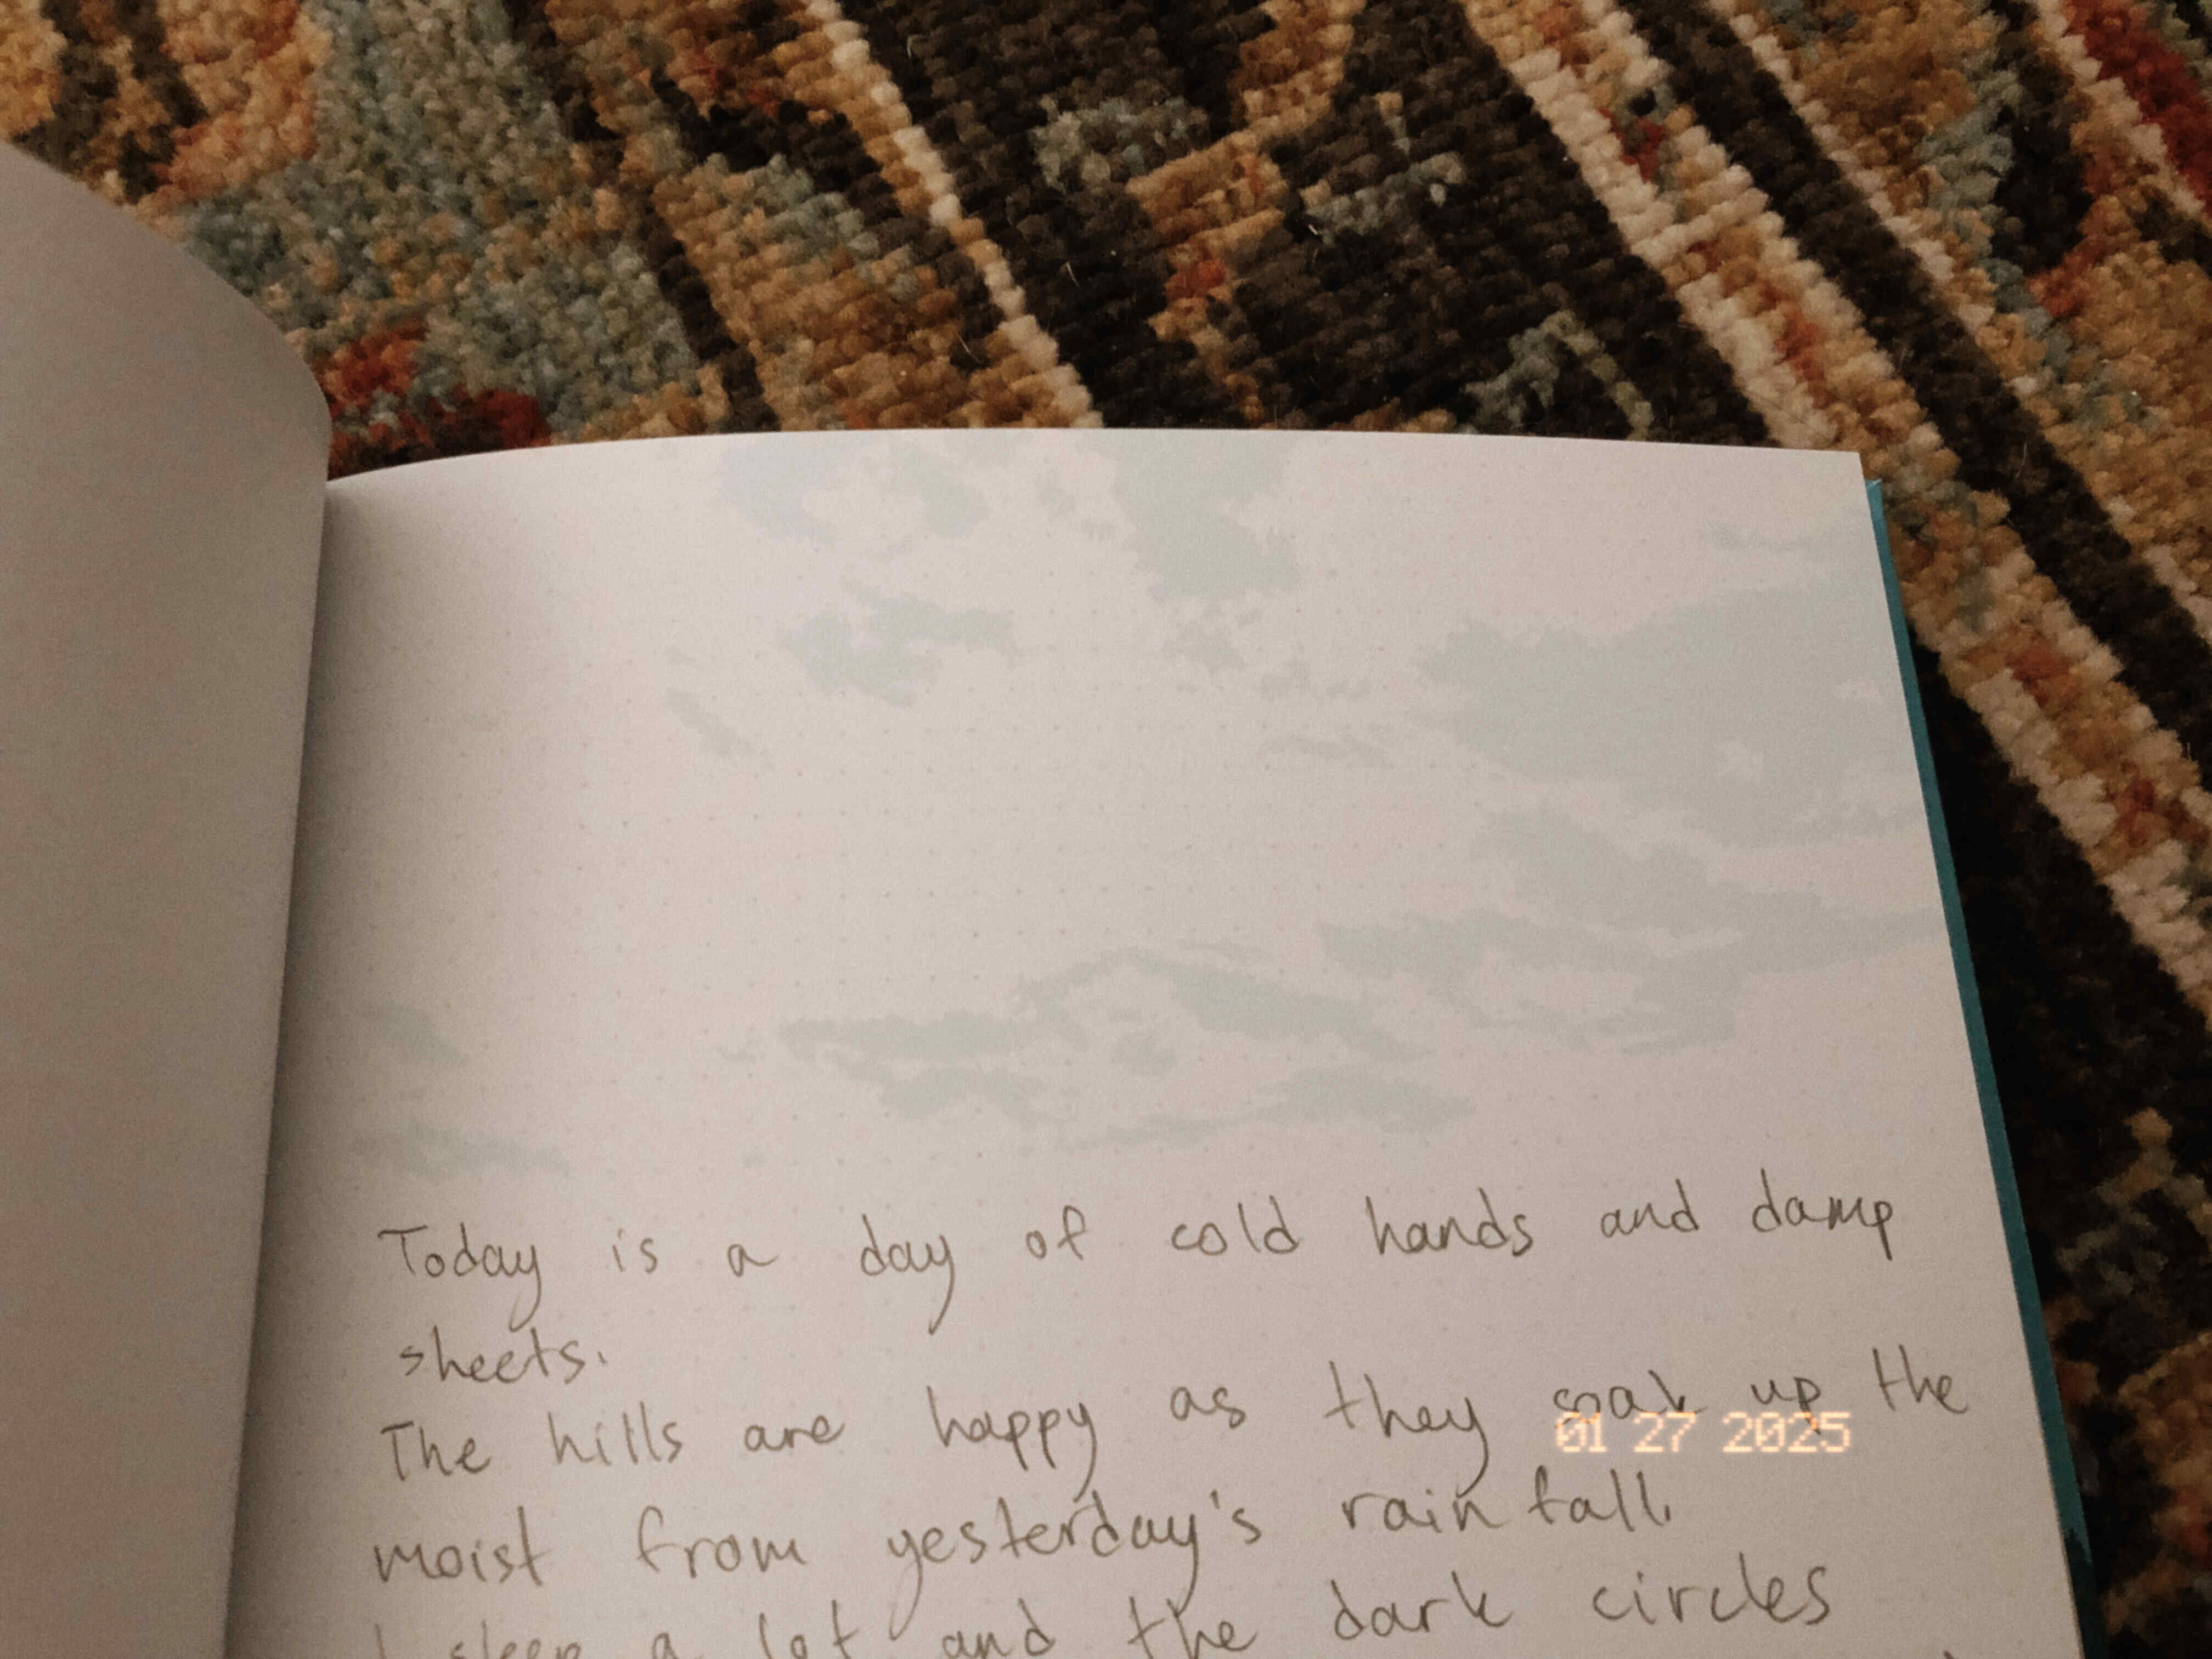 Today is a day of cold hands and damp
sheets.
The hills are happy as they soak up the
01 27 2025
moist from yesterday's rainfall.
I sleep a lot and the dark circles